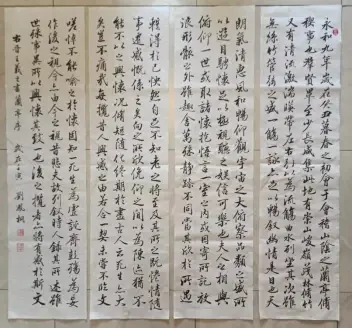 永和九年歲在癸丑暮春之初會于會稽山陰之蘭亭脩
稧事也群賢畢至少長咸集此地有崇山峻嶺茂林脩竹
又有清流激湍暎帶左右引以為流觴曲水列坐其次雖
無絲竹管弦之盛一觴一詠亦足以暢敘幽情是日也天
朗氣清惠風和暢仰觀宇宙之大俯察品類之盛所
以遊目騁懷足以極視聽之娛信可樂也夫人之相與
俯仰一世或取諸懷抱悟言一室之內或因寄所託放
浪形骸之外雖趣舍萬殊靜躁不同當其欣於所遇
暫得於己快然自足不知老之將至及其所之既惓情隨
事遷感慨係之矣向之所欣俛仰之間以為陳迹猶不
能不以之興懷況脩短隨化終期於盡古人云死生亦大
矣豈不痛哉每攬昔人興感之由若合一契未嘗不臨文
嗟悼不能喻之於懷固知一死生為虛誕齊彭殤為妄
作後之視今亦由今之視昔悲夫故列敘時人錄其所述雖
世殊事異所以興懷其致一也後之攬者亦將有感於斯文
右晉王羲之書蘭亭序 歲在壬寅 劉鳳桐